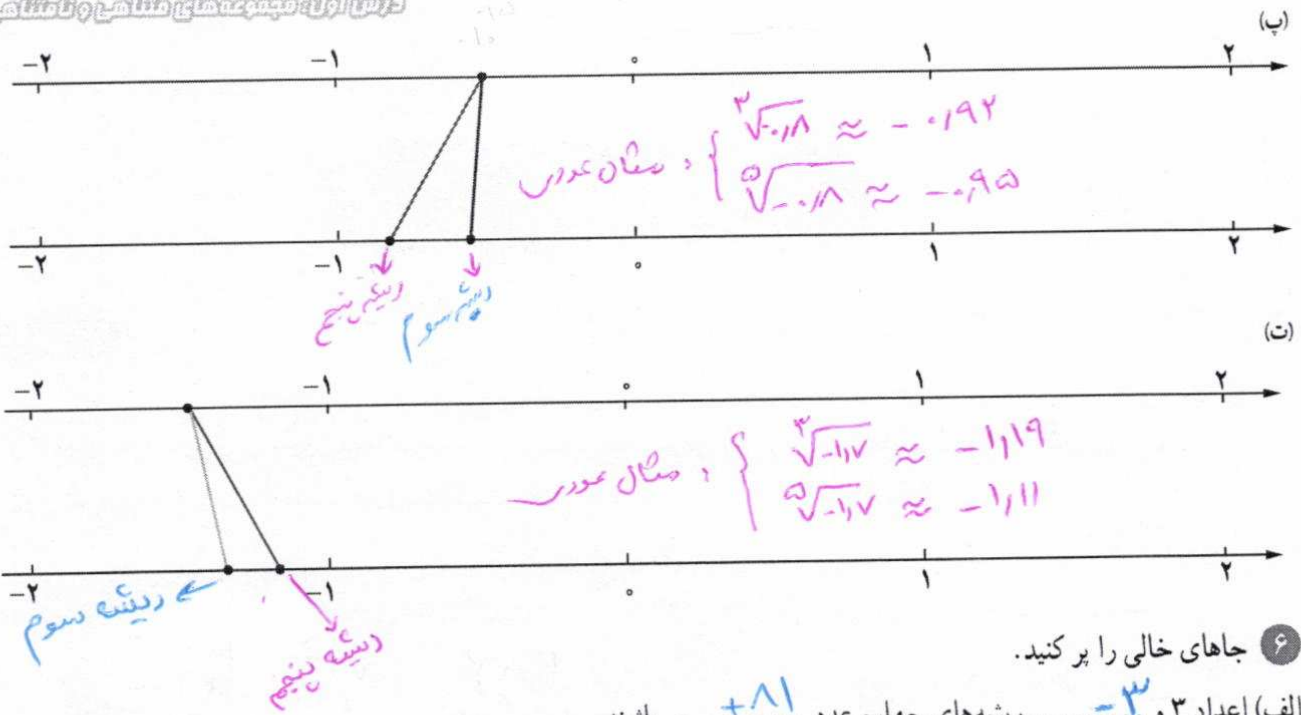 درس اول: مجموعه های متناهی و نامتناهی
(پ)
−۲ −۱ ۰ ۱ ۲
مثال عددی: { ∛−۰٫۸ ≈ −۰٫۹۲
⁵√−۰٫۸ ≈ −۰٫۹۵
−۲ −۱ ۰ ۱ ۲
ریشه پنجم ریشه سوم
(ت)
−۲ −۱ ۰ ۱ ۲
مثال عددی: { ∛−۱٫۷ ≈ −۱٫۱۹
⁵√−۱٫۷ ≈ −۱٫۱۱
−۲ −۱ ۰ ۱ ۲
ریشه سوم ریشه پنجم
۶ جاهای خالی را پر کنید.
الف) اعداد ۳ و −۳ ریشه‌های چهارم عدد +۸۱